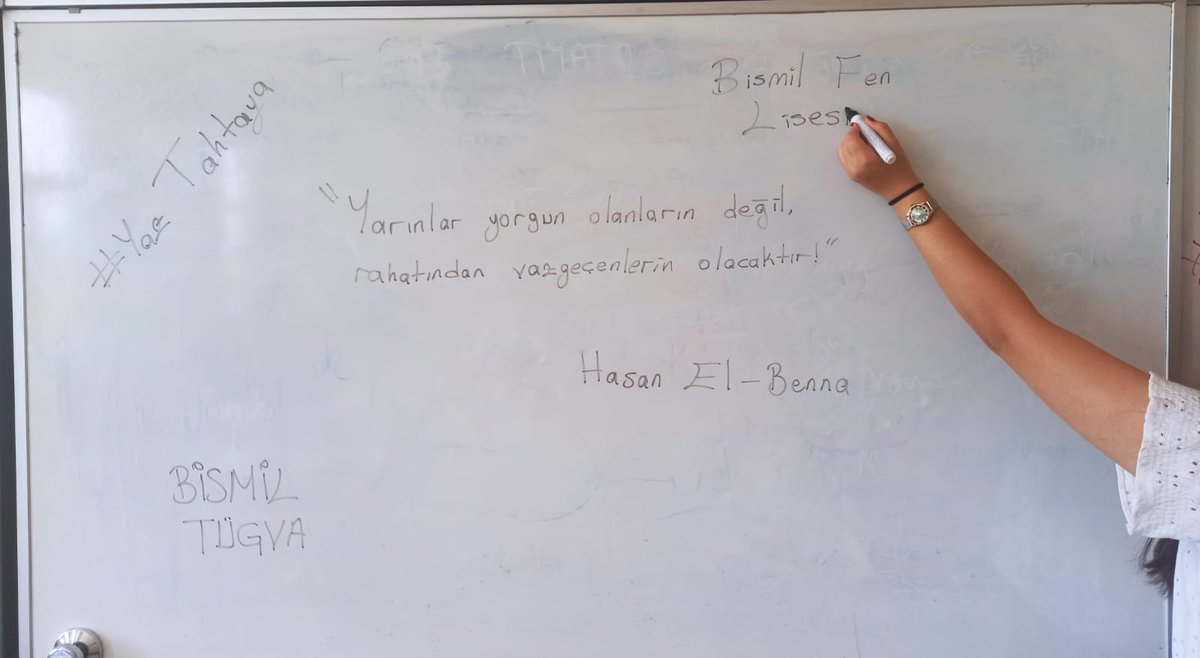 #Yaz Tahtaya
Bismil Fen
Lisesi
"Yarınlar yorgun olanların değil,
rahatından vazgeçenlerin olacaktır!"
Hasan El-Benna
BİSMİL
TÜGVA